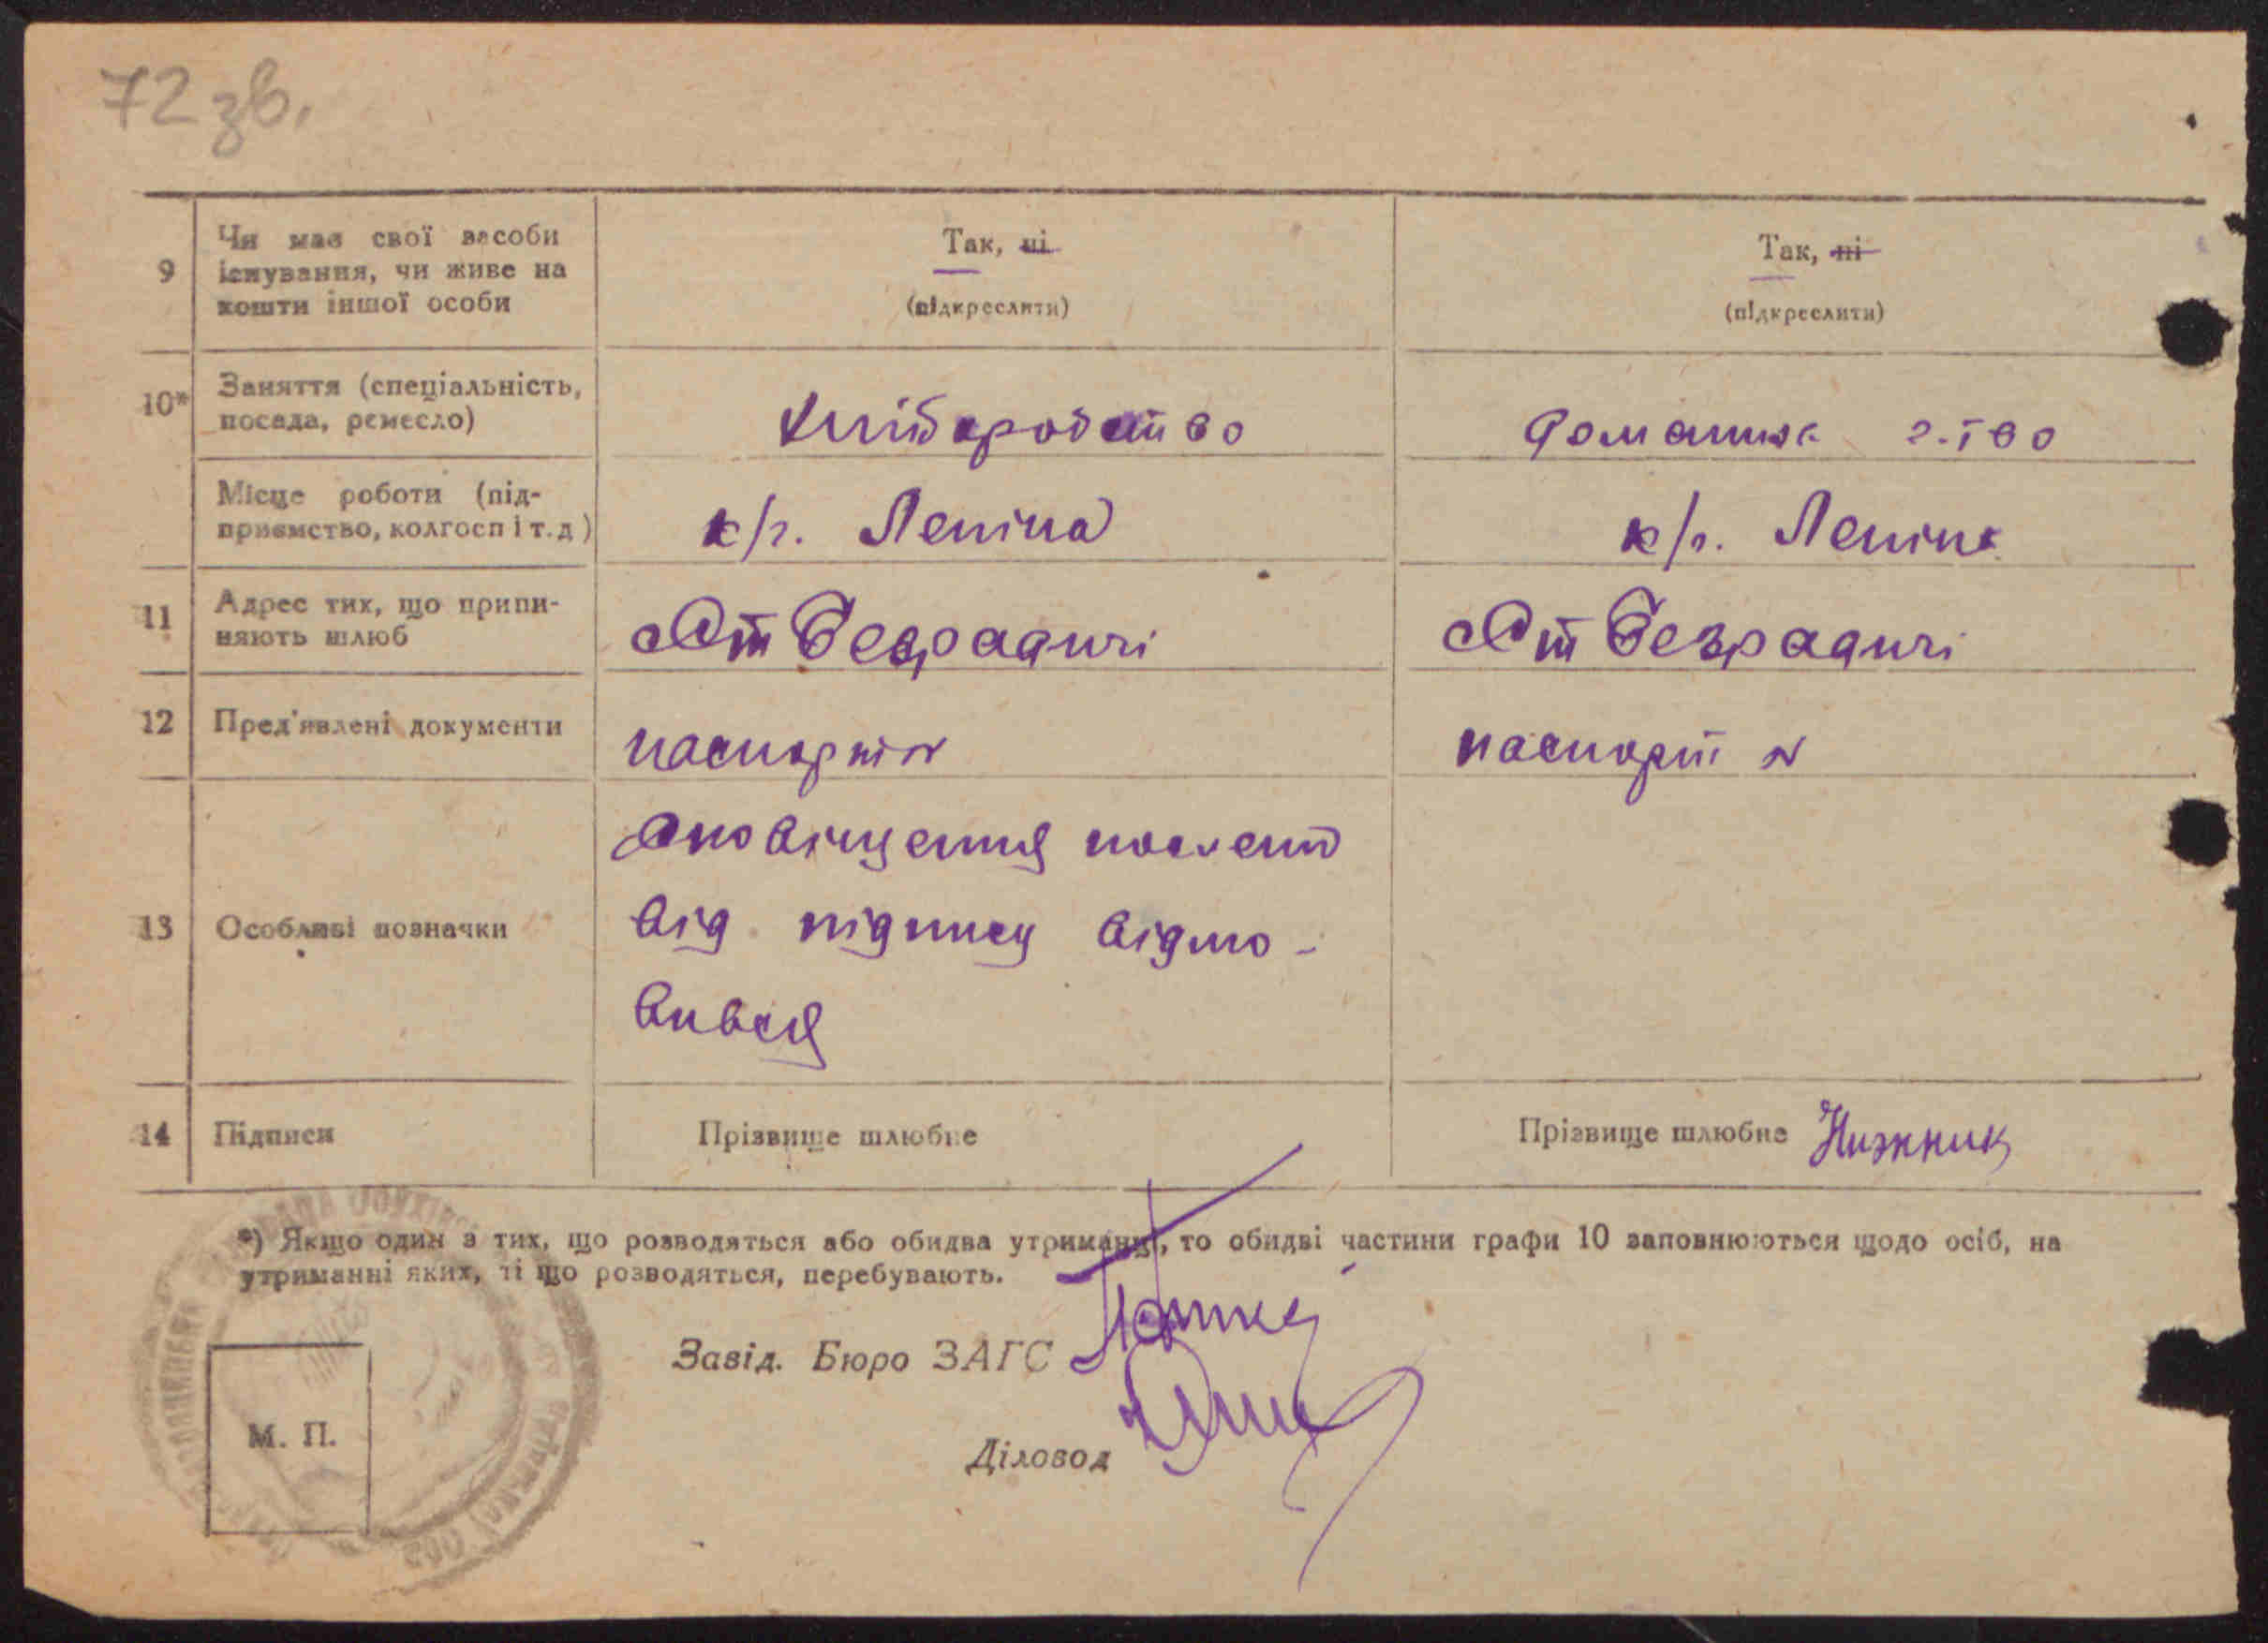 72 зв.
9
Чи має свої засоби
існування, чи живе на
кошти іншої особи
Так, ні
(підкреслити)
Так, ні
(підкреслити)
10*
Заняття (спеціальність,
посада, ремесло)
Хліборобство
домашнє г-тво
Місце роботи (під-
приємство, колгосп і т. д)
к/г. Леніна
к/г. Леніна
11
Адрес тих, що припи-
няють шлюб
Ст Безрадичі
Ст Безрадичі
12
Пред'явлені документи
паспорт №
паспорт №
13
Особливі позначки
Оповіщення послано
від підпису відмо-
вився
14
Підписи
Прізвище шлюбне
Прізвище шлюбне Нижник
*) Якщо один з тих, що розводяться або обидва утриманці, то обидві частини графи 10 заповнюються щодо осіб, на
утриманні яких, ті що розводяться, перебувають.
Завід. Бюро ЗАГС
М. П.
Діловод